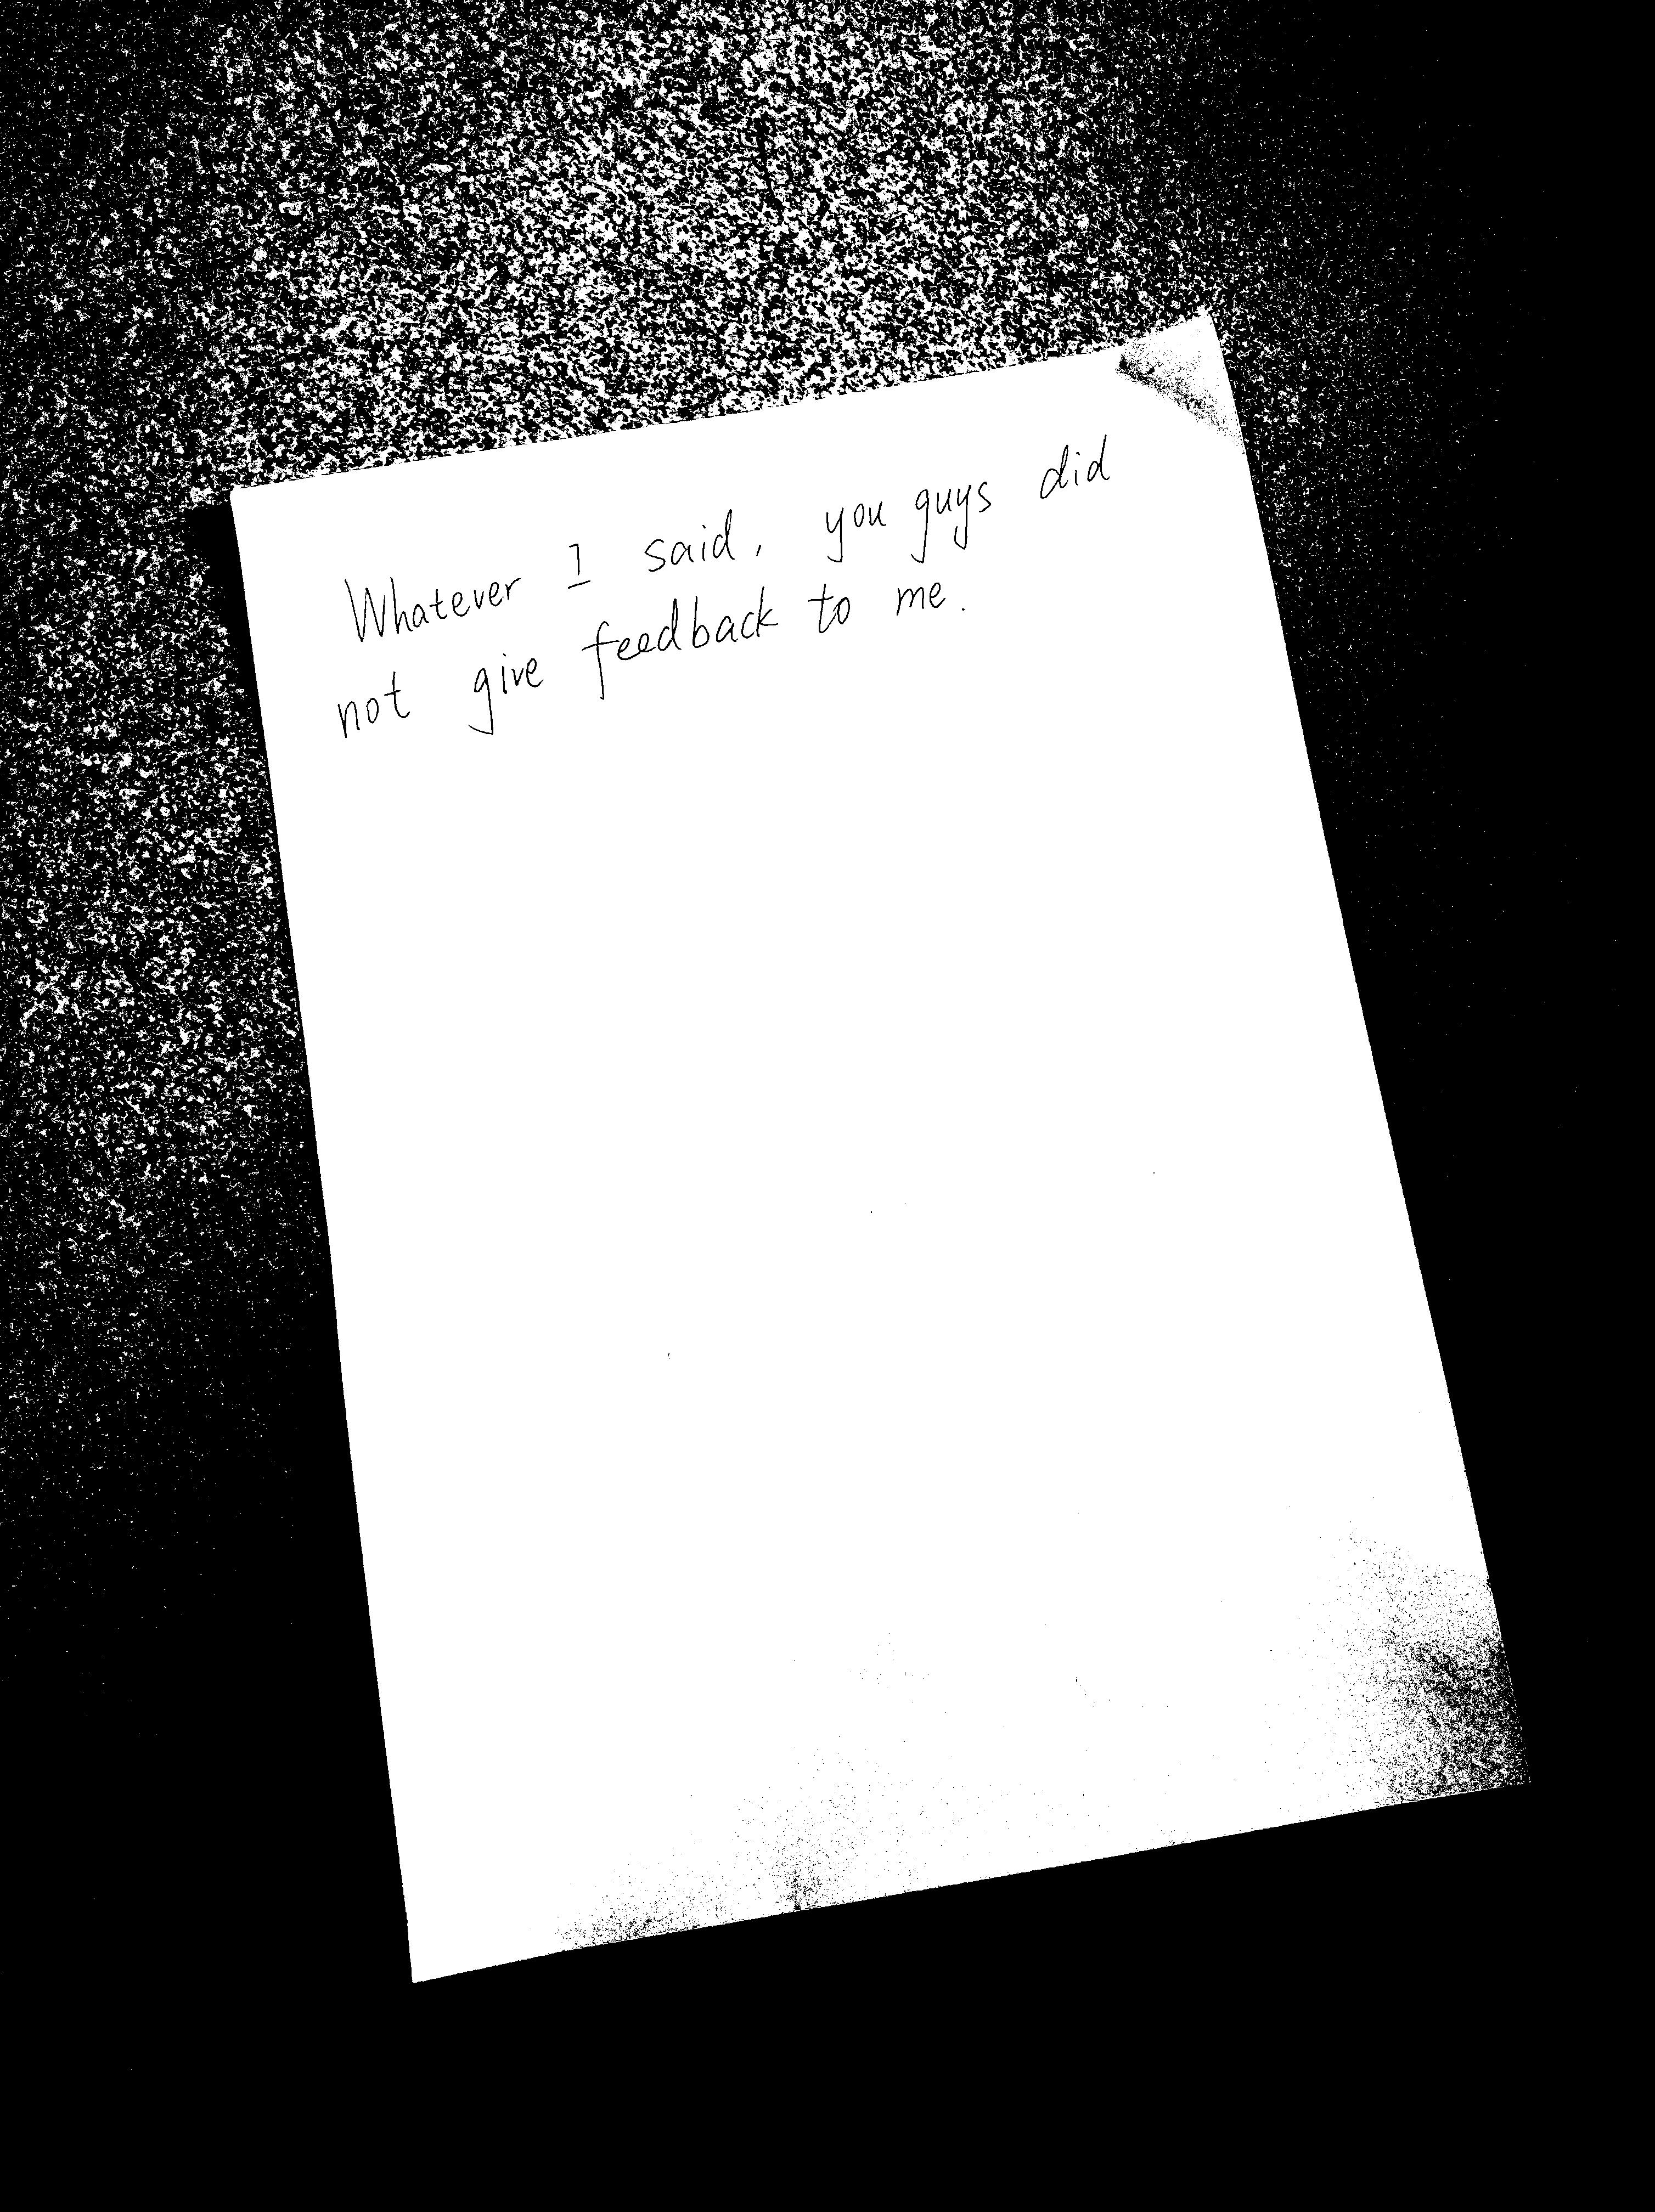 Whatever I said, you guys did
not give feedback to me.